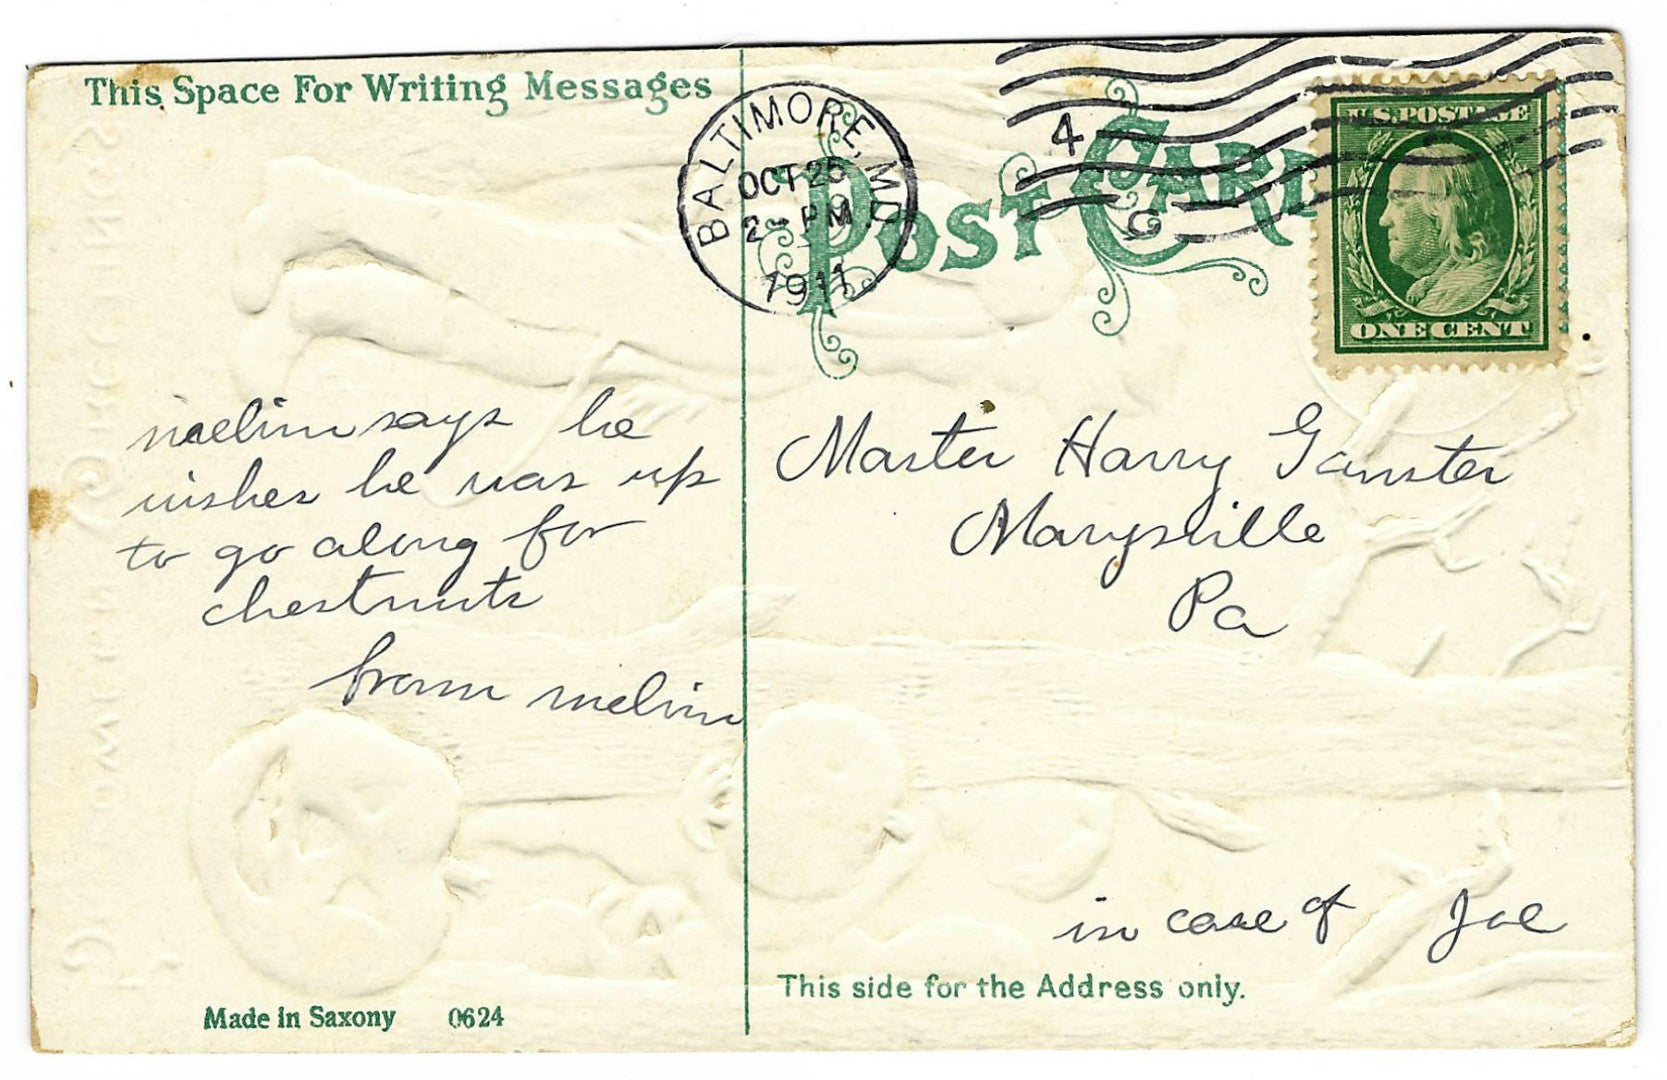 This Space For Writing Messages
BALTIMORE, MD.
OCT 25
2 - PM
1911
4
G
POST CARD
U.S. POSTAGE
ONE CENT
melim says he
wishes he was up
to go along for
chestnuts
from melim
Master Harry Ganster
Marysville
Pa
in care of Joe
This side for the Address only.
Made in Saxony 0624